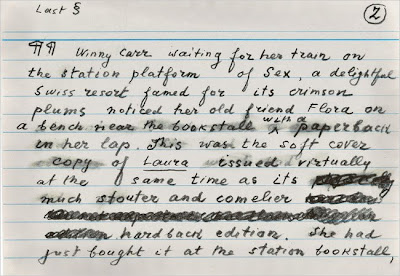 Last § 2
¶¶ Winny Carr waiting for her train on
the station platform of Sex, a delightful
Swiss resort famed for its crimson
plums noticed her old friend Flora on
a bench near the bookstall with a paperback
in her lap. This was the soft cover
copy of Laura issued virtually
at the same time as its
much stouter and comelier
hardback edition. She had
just bought it at the station bookstall,